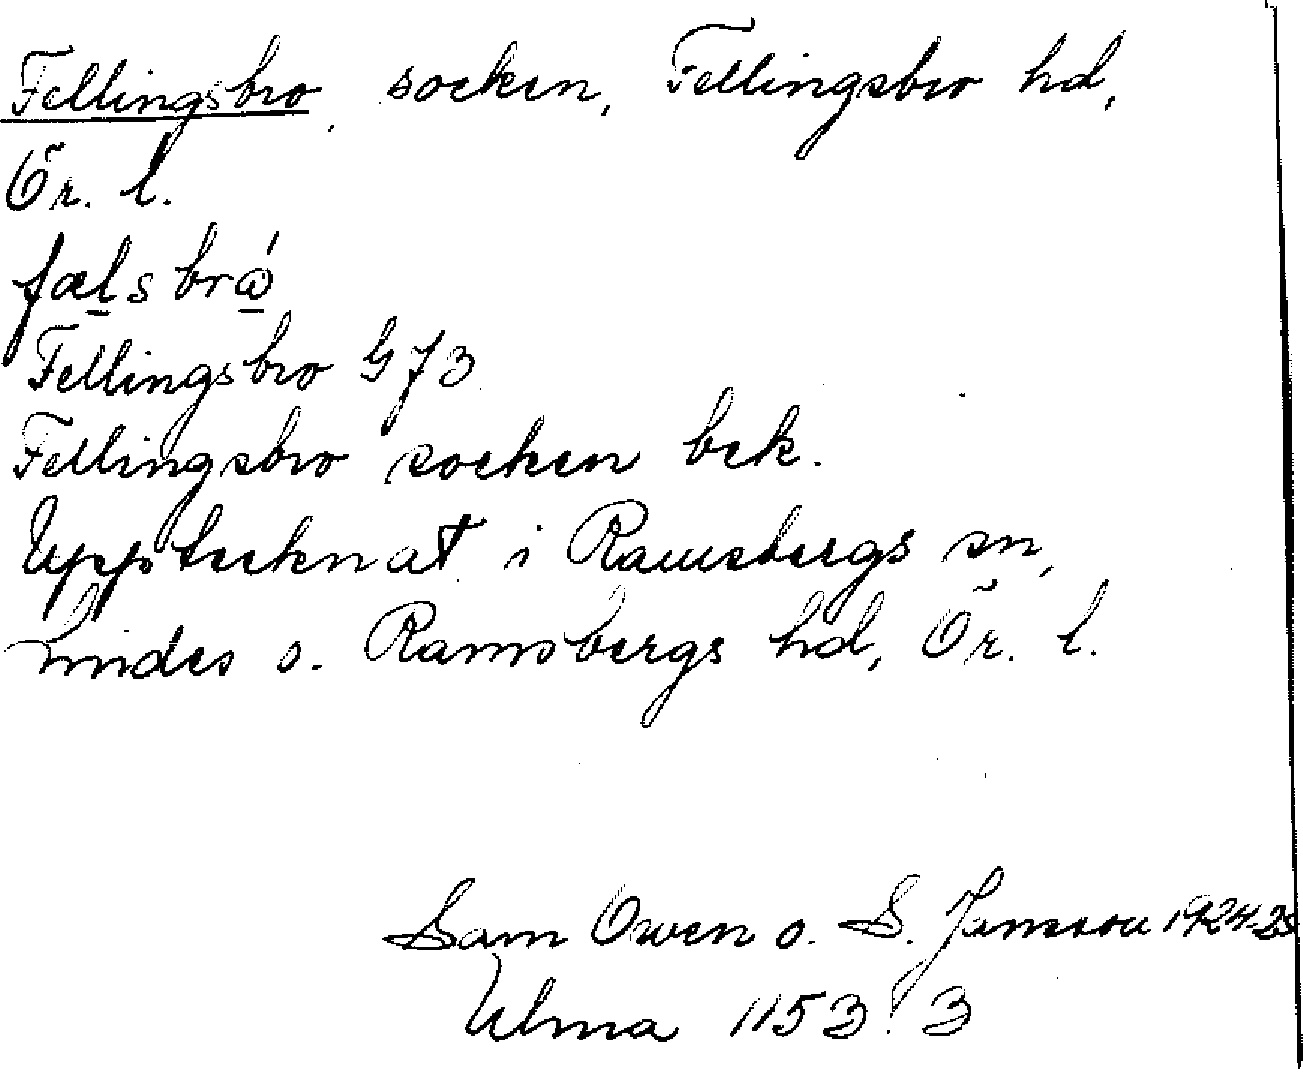 Fellingsbro, socken, Fellingsbro hd,
Ör. l.
fæl̲sbrώ̲
Fellingsbro G f 3
Fellingsbro socken bek.
Upptecknat i Ramsbergs sn,
Lindes o. Ramsbergs hd, Ör. l.
Sam Owen o. S. Jansson 1924-25
Ulma 1153:3